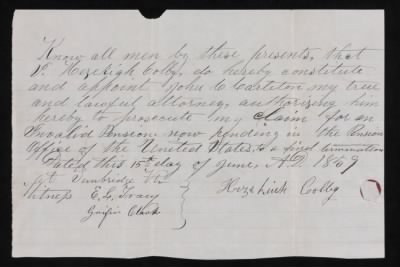 Know all men by these presents, that
I, Hezekiah Colby, do hereby constitute
and appoint John C Carleton my true
and lawful attorney, authorising him
hereby to prosecute my claim for an
Invalid Pension, now pending in the Pension
Office of the United States, to a final termination
Dated this 15th day of June, A.D. 1869
at Vt.
Witness E. L. Tracy Hezekiah Colby
Clark